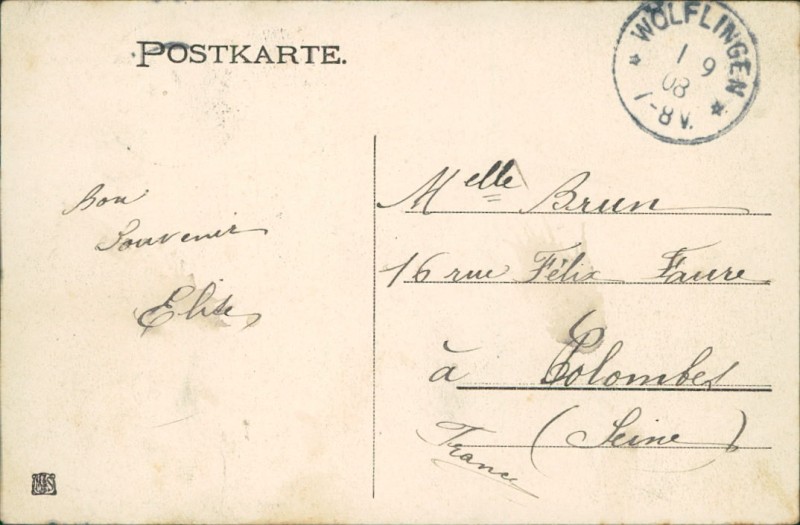 POSTKARTE.
WÖLFLINGEN
1 9
08
7-8 V.
Bon
Souvenir
Elise
Melle Brun
16 rue Félix Faure
à Colombes
(Seine)
France